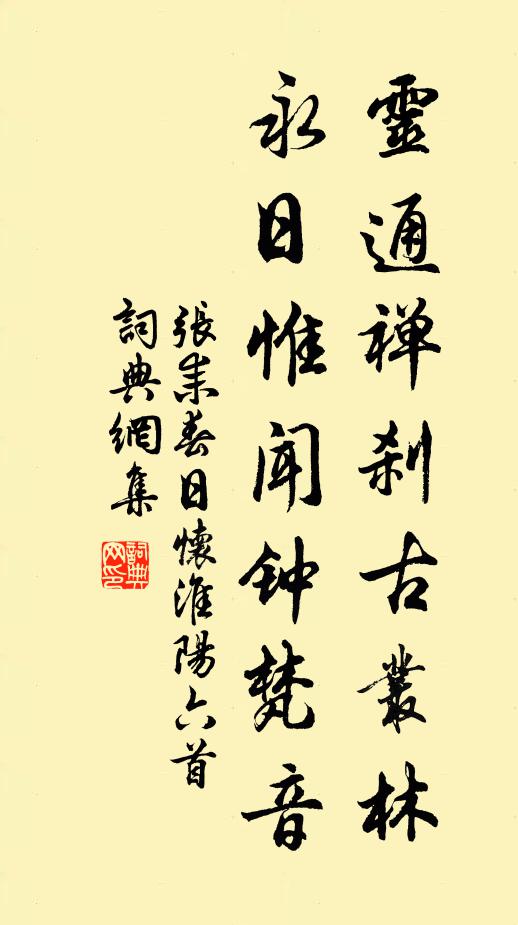 靈通禅刹古叢林
永日惟闻钟梵音
張耒春日懷淮陽六首
詞典網集
詞典网印